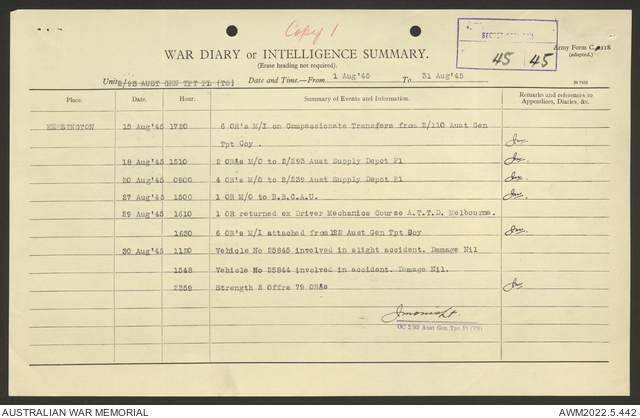 Copy 1
WAR DIARY or INTELLIGENCE SUMMARY.
(Erase heading not required).
Army Form C.2118
(adapted.)
SECRET
45 45
Unit 2/93 AUST GEN TPT PL (TS) Date and Time.—From 1 Aug'45 To 31 Aug'45
Place. Date. Hour. Summary of Events and Information. Remarks and references to
Appendices, Diaries, &c.
KENSINGTON 15 Aug'45 1720 6 OR's M/I on Compassionate Transfers from 2/110 Aust Gen
Tpt Coy .
18 Aug'45 1510 2 OR's M/O to 2/293 Aust Supply Depot Pl
20 Aug'45 0900 4 OR's M/O to 2/239 Aust Supply Depot Pl
27 Aug'45 1500 1 OR M/O to B.B.C.A.U.
29 Aug'45 1610 1 OR returned ex Driver Mechanics Course A.T.T.D. Melbourne.
1630 6 OR's M/I attached from 122 Aust Gen Tpt Coy
30 Aug'45 1120 Vehicle No 25845 involved in slight accident. Damage Nil
1548 Vehicle No 25844 involved in accident. Damage Nil.
2359 Strength 2 Offrs 79 ORs
OC 2/93 Aust Gen Tpt Pl
AUSTRALIAN WAR MEMORIAL AWM2022.5.442